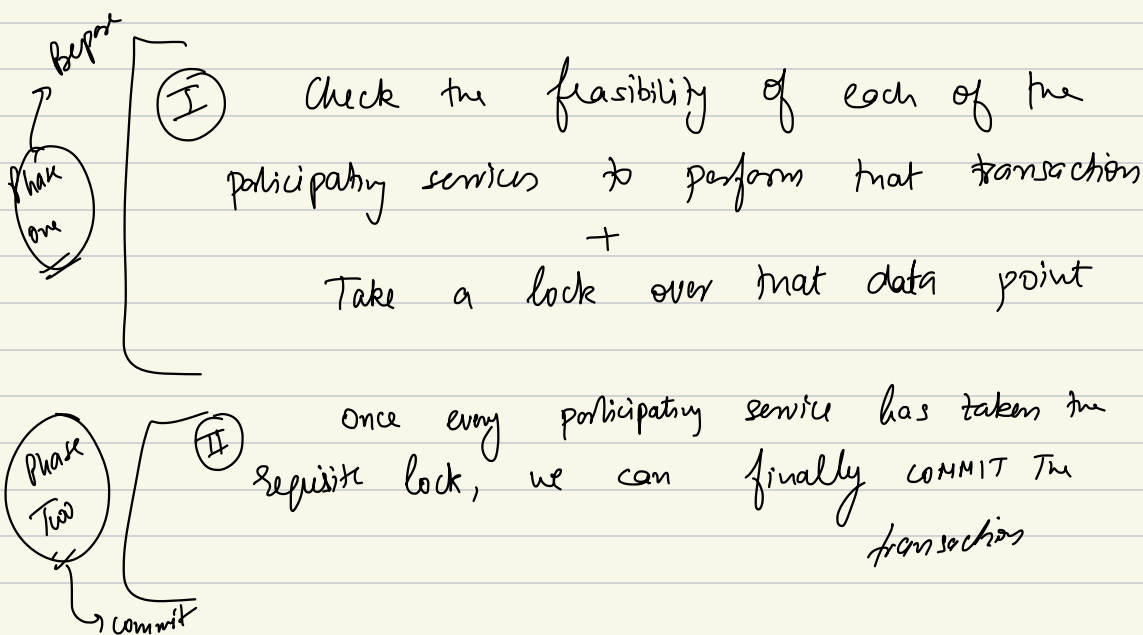 I Check the feasibility of each of the
participating services to perform that transaction
+
Take a lock over that data point
Phase
one
II Once every participating service has taken the
requisite lock, we can finally COMMIT The
transaction
Phase
Two
commit